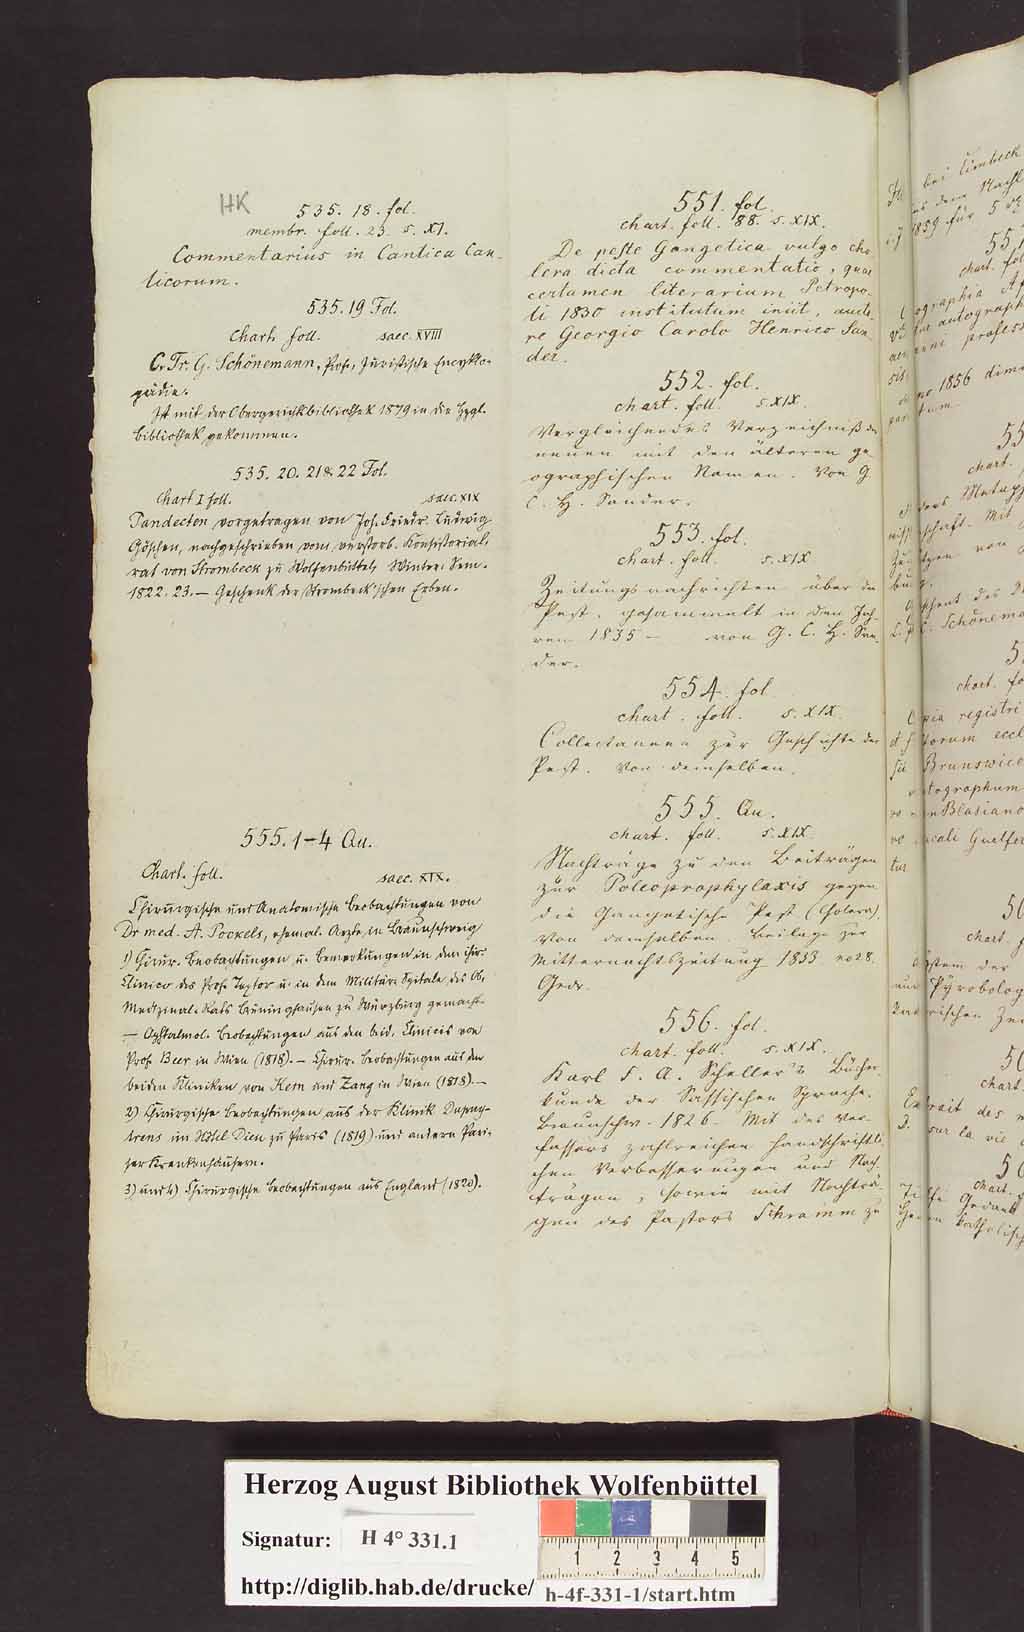 HK
535. 18. fol.
membr. foll. 23. s. XI.
Commentarius in Cantica Can-
ticorum.
535. 19 Fol.
Chart. foll. saec. XVIII
C. Fr. G. Schönemann, Prof., Juristische Encyklo-
pädie.
Ist mit der Obergerichtsbibliothek 1879 in die Hzgl.
Bibliothek gekommen.
535. 20. 21 & 22 Fol.
Chart I foll. saec. XIX
Pandecten vorgetragen von Joh. Friedr. Ludwig
Göschen, nachgeschrieben vom verstorb. Konsistorial-
rat von Strombeck zu Wolfenbüttel, Winter-Sem.
1822. 23. — Geschenk der Strombeck'schen Erben.
555. 1–4 Qu.
Chart. foll. saec. XIX.
Chirurgische und Anatomische Beobachtungen von
Dr med. A. Pockels, ehemal. Arzte in Braunschweig
1) Chirur. Beobachtungen u. Bemerkungen in dem chir.
Clinico des Prof. Textor u. in dem Militär-Spitale des Ob.
Medizinal-Rats Brüninghausen zu Würzburg gemacht
— Ophthalmol. Beobachtungen aus den beid. Clinicis von
Prof. Beer in Wien (1818). — Chirur. Beobachtungen aus den
beiden Kliniken von Kern und Zang in Wien (1818). —
2) Chirurgische Beobachtungen aus der Klinik Dupuy-
trens im Hôtel Dieu zu Paris (1819) und andern Pari-
ser Krankenhäusern.
3) und 4) Chirurgische Beobachtungen aus England (1820).
551. fol.
chart. foll. 88. s. XIX.
De peste Gangetica vulgo cho-
lera dicta commentatio, quae
certamen literarium Petropo-
li 1830 institutum iniit, aucto-
re Georgio Carolo Henrico San-
der.
552. fol.
chart. foll. s. XIX.
Vergleichendes Verzeichniß der
neuen mit den älteren ge-
ographischen Namen. Von G.
C. H. Sander.
553. fol.
chart. foll. s. XIX
Zeitungsnachrichten über die
Pest, gesammelt in den Jah-
ren 1835 — von G. C. H. San-
der.
554. fol
chart. foll. s. XIX.
Collectaneen zur Geschichte der
Pest. Von demselben.
555. Qu.
chart. foll. s. XIX.
Nachträge zu den Beiträgen
zur Poleoprophylaxis gegen
die Gangetische Pest (Cholera).
Von demselben. Beilage zur
Mitternachtszeitung 1833 no 28.
Gedr.
556. fol.
chart. foll. s. XIX.
Karl F. A. Scheller's Bücher-
kunde der Sassischen Sprache.
Braunschw. 1826. Mit des Ver-
fassers zahlreichen handschriftli-
chen Verbesserungen und Nach-
trägen, sowie mit Nachträ-
gen des Pastors Schramm zu
bei Limbeck
aus dem Nachl
1859 für 5
chart. fol
autograph
profess
1856
chart.
Metaph
schaft. Mit
von
Schönema
chart. fo
registri
Brunswice
autographum
Blasiano
Guelfer
chart. f
System der
Pyrobolog
chart
des
sur la vie
chart.
Gedank
katholisch
Herzog August Bibliothek Wolfenbüttel
Signatur: H 4° 331.1
1 2 3 4 5
http://diglib.hab.de/drucke/ h-4f-331-1/start.htm